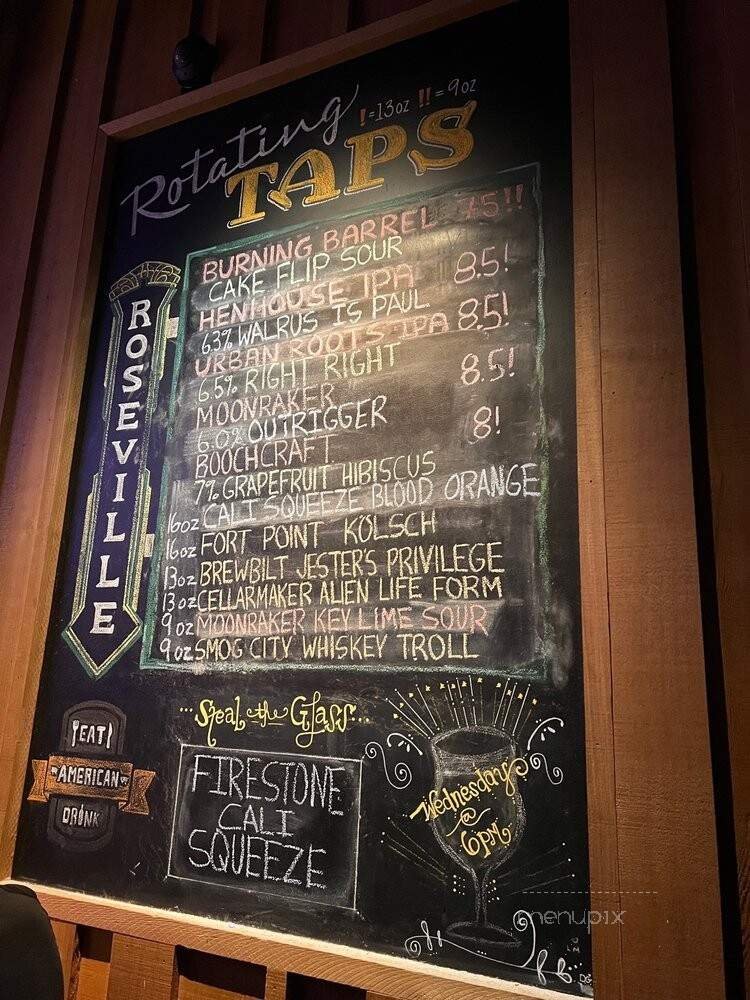 Rotating !=13oz !!=9oz
TAPS
ROSEVILLE
BURNING BARREL 7.5!!
CAKE FLIP SOUR
HENHOUSE IPA 8.5!
6.3% WALRUS IS PAUL
URBAN ROOTS IPA 8.5!
6.5% RIGHT RIGHT
MOONRAKER 8.5!
6.0% OUTRIGGER
BOOCHCRAFT 8!
7% GRAPEFRUIT HIBISCUS
16oz CALI SQUEEZE BLOOD ORANGE
16oz FORT POINT KÖLSCH
13oz BREWBILT JESTER'S PRIVILEGE
13oz CELLARMAKER ALIEN LIFE FORM
9oz MOONRAKER KEY LIME SOUR
9oz SMOG CITY WHISKEY TROLL
...Steal the Glass...
EAT
AMERICAN
DRINK
FIRESTONE
CALI
SQUEEZE
Wednesdays
@
6PM
menupix